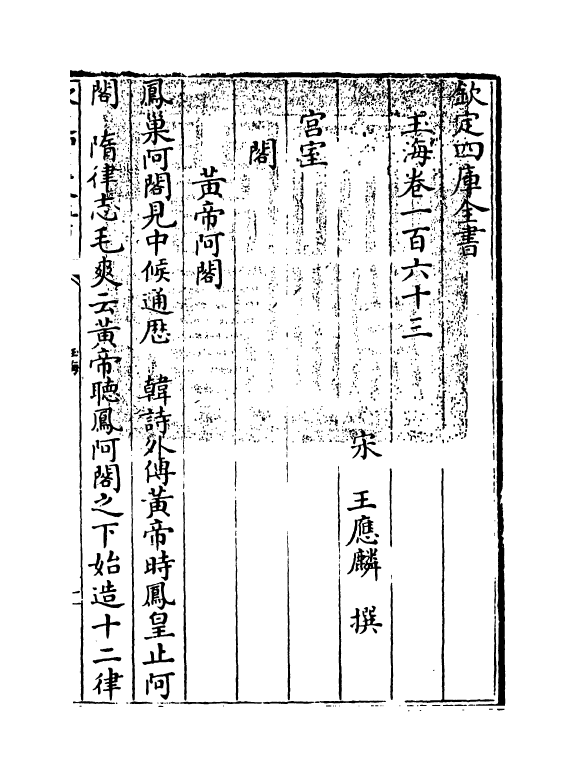 欽定四庫全書
玉海卷一百六十三
宋 王應麟 撰
宫室
閣
黃帝阿閣
鳳巢阿閣見中候通厯 韓詩外傳黃帝時鳳皇止阿
閣 隋律志毛爽云黃帝聴鳳阿閣之下始造十二律
玉海